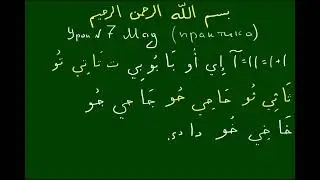 بسم الله الرحمن الرحيم
Урок №7 Мад (практика)
ا+ا=اا=آ إي أو بَا بُو بِي ت تَا تِي تُو
ثَا ثِي ثُو حَا حِي حُو جَا جِي جُو
خَا خِي خُو دا دو